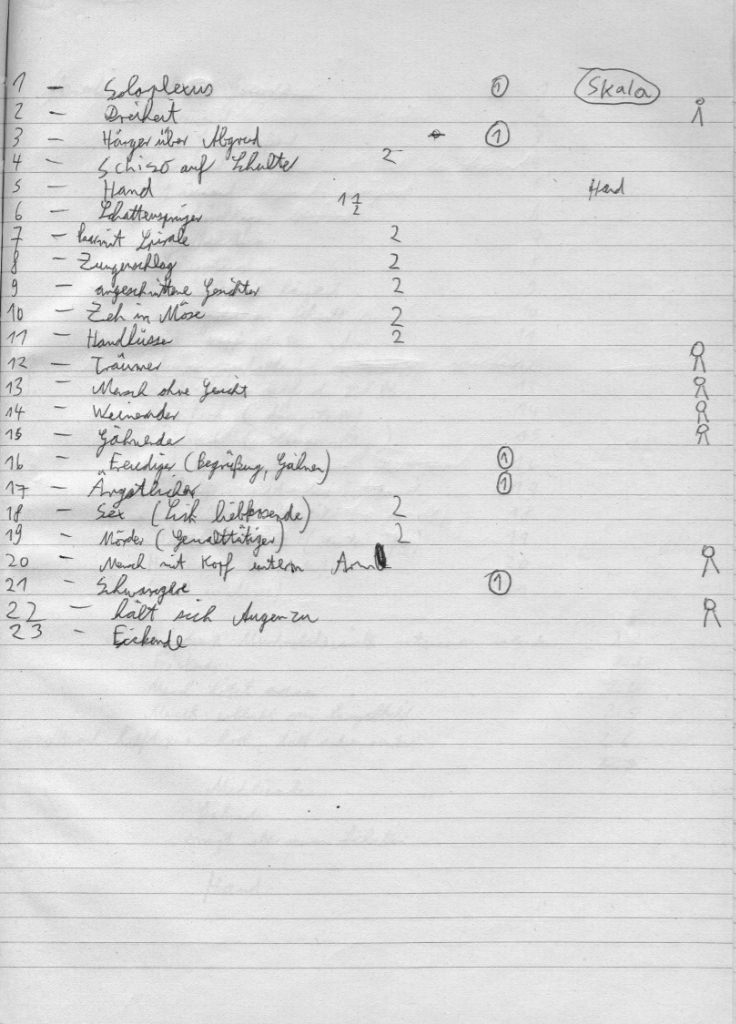 1 — Soloplexus ① Skala
2 — Dreiheit
3 — Hänger über Abgrund ①
4 — Schiso auf Schulter 2
5 — Hand Hand
6 — Schattenspringer 1 1/2
7 — Spirale 2
8 — Zungenschlag 2
9 — angeschnittene Gesichter 2
10 — Zeh in Möse 2
11 — Handküsser 2
12 — Träumer
13 — Mensch ohne Gesicht
14 — Weinender
15 — Gähnender
16 — Freudiger (Begrüßung, Gähnen) ①
17 — Ängstlicher ①
18 — Sex (Sich liebkosende) 2
19 — Mörder (Gewalttätiger) 2
20 — Mensch mit Kopf unterm Arm
21 — Schwangere ①
22 — hält sich Augen zu
23 —